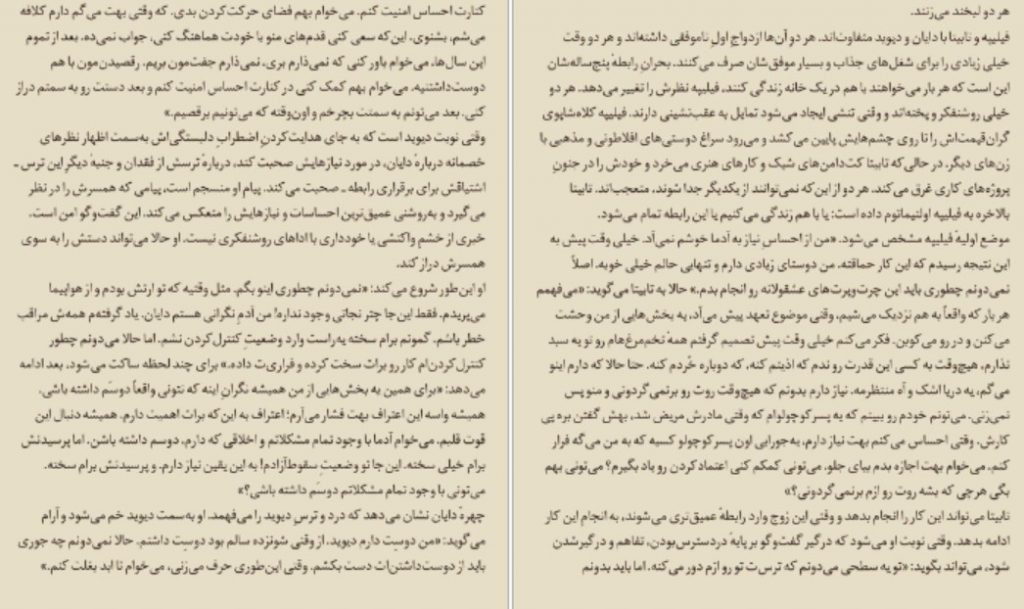 کنارت احساس امنیت کنم. می‌خوام بهم فضای حرکت‌کردن بدی. که وقتی بهت می‌گم دارم کلافه
می‌شم، بشنوی. این‌که سعی کنی قدم‌های منو با خودت هماهنگ کنی، جواب نمی‌ده. بعد از تموم
این سال‌ها، می‌خوام باور کنی که نمی‌ذارم بری، نمی‌ذارم جفت‌مون بریم. رقصیدن‌مون با هم
دوست‌داشتنیه. می‌خوام بهم کمک کنی در کنارت احساس امنیت کنم و بعد دستت رو به سمتم دراز
کنی. بعد می‌تونم به سمتت بچرخم و اون‌وقته که می‌تونیم برقصیم.»
وقتی نوبت دیوید است که به جای هدایت‌کردنِ اضطرابِ دلبستگی‌اش به‌سمت اظهار نظرهای
خصمانه دربارهٔ دایان، در مورد نیازهایش صحبت کند، دربارهٔ ترسش از فقدان و جنبهٔ دیگرِ این ترس ـ
اشتیاقش برای برقراری رابطه ـ صحبت می‌کند. پیام او منسجم است، پیامی که همسرش را در نظر
می‌گیرد و به‌روشنی عمیق‌ترین احساسات و نیازهایش را منعکس می‌کند. این گفت‌وگو امن است.
خبری از خشمِ واکنشی یا خودداری با اداهای روشنفکری نیست. او حالا می‌تواند دستش را به سوی
همسرش دراز کند.
او این‌طور شروع می‌کند: «نمی‌دونم چطوری اینو بگم. مثل وقتیه که تو ارتش بودم و از هواپیما
می‌پریدم. فقط این‌جا چتر نجاتی وجود نداره! من آدمِ نگرانی هستم دایان. یاد گرفته‌م همه‌ش مراقب
خطر باشم. گمونم برام سخته یه‌راست وارد وضعیتِ کنترل‌کردن نشم. اما حالا می‌دونم چطور
کنترل‌کردن‌ام کار رو برات سخت کرده و فراری‌ت داده.» برای چند لحظه ساکت می‌شود، بعد ادامه
می‌دهد: «برای همین به بخش‌هایی از من همیشه نگران اینه که نتونی واقعاً دوستَم داشته باشی.
همیشه واسه این اعتراف بهت فشار می‌آرم؛ اعتراف به این‌که برات اهمیت دارم. همیشه دنبال این
قوت قلبم. می‌خوام آدما با وجود تمام مشکلاتم و اخلاقی که دارم، دوسم داشته باشن. اما پرسیدنش
برام خیلی سخته. این‌جا تو وضعیتِ سقوط‌آزادم! به این یقین نیاز دارم. و پرسیدنش برام سخته.
می‌تونی با وجود تمام مشکلاتم دوستَم داشته باشی؟»
چهرهٔ دایان نشان می‌دهد که درد و ترسِ دیوید را می‌فهمد. او به‌سمت دیوید خم می‌شود و آرام
می‌گوید: «من دوستِت دارم دیوید. از وقتی شونزده سالم بود دوستِت داشتم. حالا نمی‌دونم چه جوری
باید از دوست‌داشتن‌ات دست بکشم. وقتی این‌طوری حرف می‌زنی، می‌خوام تا ابد بغلت کنم.»
هر دو لبخند می‌زنند.
فیلیپه و تابیتا با دایان و دیوید متفاوت‌اند. هر دوِ آن‌ها ازدواجِ اولِ ناموفقی داشته‌اند و هر دو وقت
خیلی زیادی را برای شغل‌های جذاب و بسیار موفق‌شان صرف می‌کنند. بحرانِ رابطهٔ پنج‌ساله‌شان
این است که هر بار می‌خواهند با هم در یک خانه زندگی کنند، فیلیپه نظرش را تغییر می‌دهد. هر دو
خیلی روشنفکر و پخته‌اند و وقتی تنشی ایجاد می‌شود تمایل به عقب‌نشینی دارند. فیلیپه کلاه‌شاپوی
گران‌قیمت‌اش را تا روی چشم‌هایش پایین می‌کشد و می‌رود سراغ دوستی‌های افلاطونی و مذهبی با
زن‌های دیگر، در حالی‌که تابیتا کت‌دامن‌های شیک و کارهای هنری می‌خرد و خودش را در جنونِ
پروژه‌های کاری غرق می‌کند. هر دو از این‌که نمی‌توانند از یکدیگر جدا شوند، متعجب‌اند. تابیتا
بالاخره به فیلیپه اولتیماتوم داده است: یا با هم زندگی می‌کنیم یا این رابطه تمام می‌شود.
موضع اولیهٔ فیلیپه مشخص می‌شود. «من از احساسِ نیاز به آدما خوشم نمی‌آد. خیلی وقت پیش به
این نتیجه رسیدم که این کار حماقته. من دوستای زیادی دارم و تنهایی حالم خیلی خوبه. اصلاً
نمی‌دونم چطوری باید این چرت‌وپرت‌های عشقولانه رو انجام بدم.» حالا به تابیتا می‌گوید: «می‌فهمم
هر بار که واقعاً به هم نزدیک می‌شیم، وقتی موضوع تعهد پیش می‌آد، یه بخش‌هایی از من وحشت
می‌کنن و در رو می‌کوبن. فکر می‌کنم خیلی وقت پیش تصمیم گرفتم همهٔ تخم‌مرغ‌هام رو تو یه سبد
نذارم، هیچ‌وقت به کسی این قدرت رو ندم که اذیتم کنه، که دوباره خُردم کنه. حتا حالا که دارم اینو
می‌گم، یه دریا اشک و آه منتظرمه. نیاز دارم بدونم که هیچ‌وقت روت رو برنمی‌گردونی و منو پس
نمی‌زنی. می‌تونم خودم رو ببینم که یه پسرکوچولوام که وقتی مادرش مریض شد، بهش گفتن بره پی
کارش. وقتی احساس می‌کنم بهت نیاز دارم، یه‌جورایی اون پسرکوچولو کسیه که به من می‌گه فرار
کنم. می‌خوام بهت اجازه بدم بیای جلو. می‌تونی کمکم کنی اعتمادکردن رو یاد بگیرم؟ می‌تونی بهم
بگی هرچی که بشه روت رو ازم برنمی‌گردونی؟»
تابیتا می‌تواند این کار را انجام بدهد و وقتی این زوج وارد رابطهٔ عمیق‌تری می‌شوند، به انجام این کار
ادامه بدهد. وقتی نوبت او می‌شود که درگیر گفت‌وگو بر پایهٔ دردسترس‌بودن، تفاهم و درگیرشدن
شود، می‌تواند بگوید: «تو یه سطحی می‌دونم که ترس‌ت تو رو ازم دور می‌کنه. اما باید بدونم